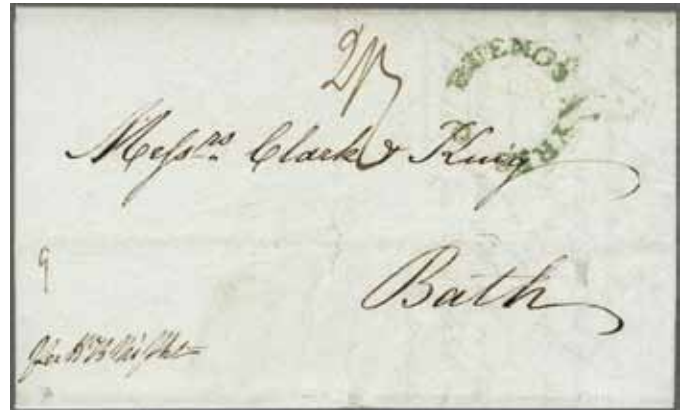 2/7
BUENOS AYRES
Messrs Clark & King
Bath
9